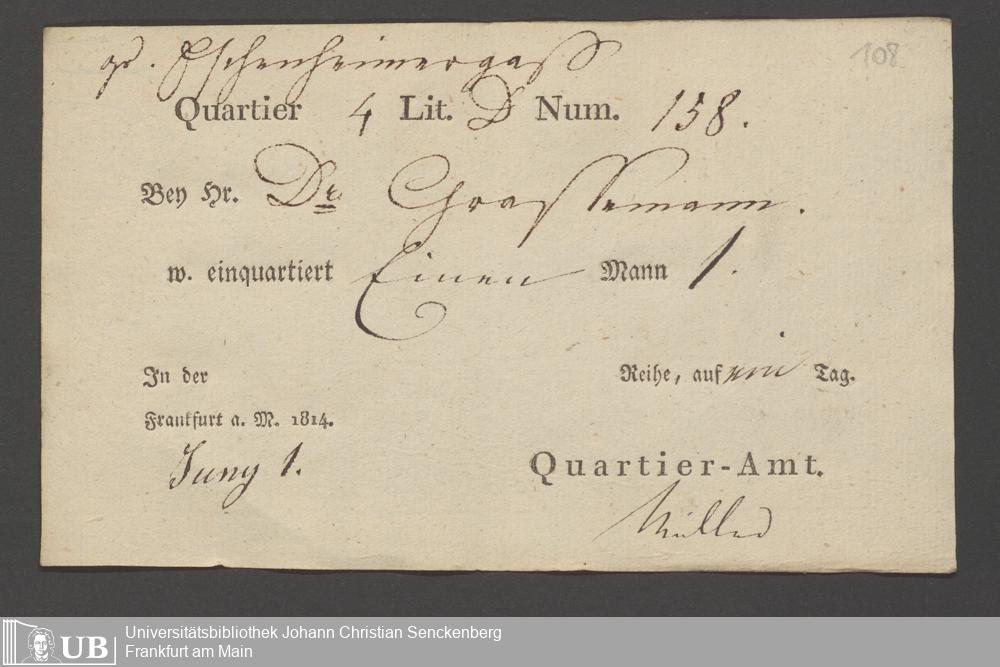 gr. Eschenheimergass
108
Quartier 4 Lit. D Num. 158.
Bey Hr. Dr. Grassemann.
w. einquartiert Einen Mann 1.
In der Reihe, auf ein Tag.
Frankfurt a. M. 1814.
Juny 1.
Quartier-Amt.
Müller
UB
Universitätsbibliothek Johann Christian Senckenberg
Frankfurt am Main